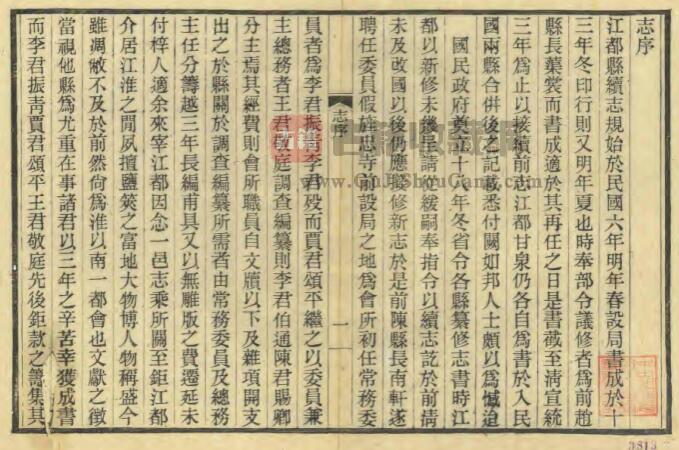 志序
江都縣續志規始於民國六年明年春設局書成於十
三年冬印行則又明年夏也時奉部令議修者為前趙
縣長葉裳而書成適於其再任之日是書蕆至淸宣統
三年為止以接續前志江都甘泉仍各自為書於入民
國兩縣合併後之記載悉付闕如邦人士頗以為憾迨
國民政府奠 十 年冬省令各縣纂修志書時江
都以新修未幾呈請 緩嗣奉指令以續志訖於前淸
未及改國以後仍應賡修新志於是前陳縣長南軒遂
聘任委員假旌忠寺前設局之地為會所初任常務委
志序
一
員者為李君振 李君歿而賈君頌平繼之以委員兼
主總務者王君敬庭調查編纂則李君伯通陳君賜卿
分主焉其經費則會所職員自文牘以下及雜項開支
出之於縣關於調查編纂所需者由常務委員及總務
主任分籌越三年長編甫具又以無雕版之費遷延未
付梓人適余來宰江都因念一邑志乘所關至鉅江都
介居江淮之閒夙擅鹽筴之富地大物博人物稱盛今
雖凋敝不及於前然尙為淮以南一都會也文獻之徵
當視他縣為尤重在事諸君以三年之辛苦幸獲成書
而李君振靑賈君頌平王君敬庭先後鉅款之籌集其
3813